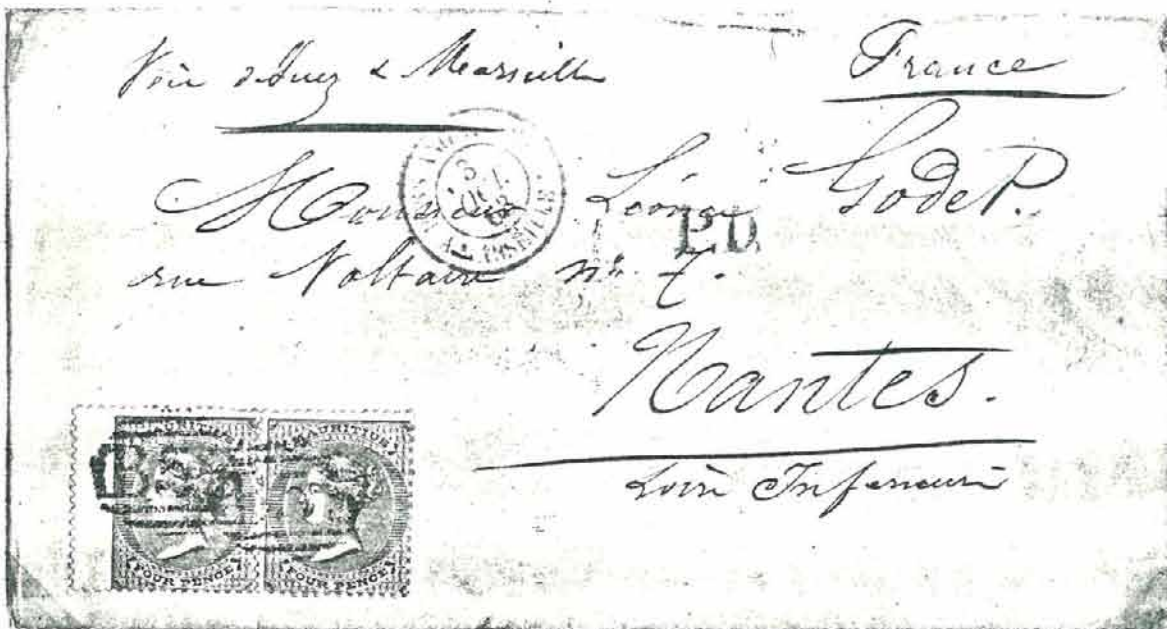 Voie de Suez & Marseille
France
Monsieur Léonce Godet.
rue Voltaire no. 7.
P.D.
Nantes.
Loire Inférieure
MAURITIUS MAURITIUS
FOUR PENCE FOUR PENCE